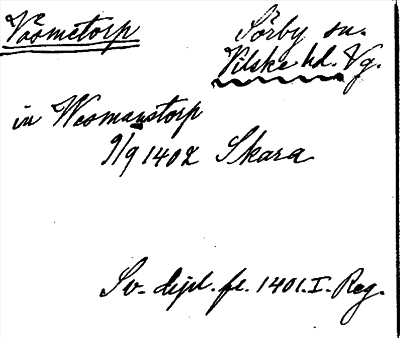 Vosmetorp
Sörby sn.
Vilske hd. Vg.
in Wesmanstorp
9/9 1402 Skara
Sv. dipl. fr. 1401. I. Reg.